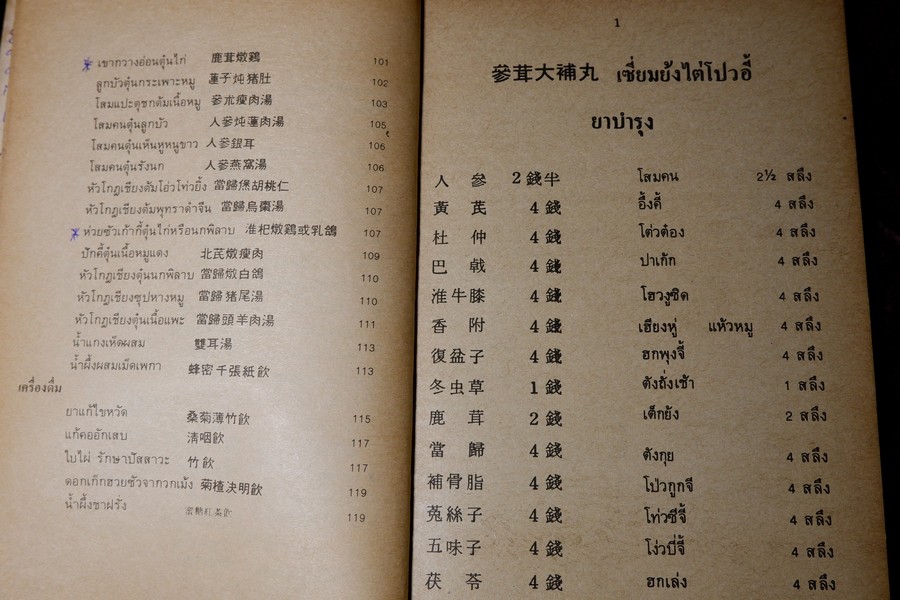 เขากวางอ่อนตุ๋นไก่ 鹿茸燉鷄 101
ลูกบัวตุ๋นกระเพาะหมู 蓮子炖猪肚 102
โสมแปะตุชกต้มเนื้อหมู 參朮瘦肉湯 103
โสมคนตุ๋นลูกบัว 人參炖蓮肉湯 105
โสมคนตุ๋นเห็นหูหนูขาว 人參銀耳 106
โสมคนตุ๋นรังนก 人參燕窩湯 106
หัวโกฏเชียงต้มโอ่วโท่วยิ้ง 當歸煲胡桃仁 107
หัวโกฏเชียงต้มพุทราดำจีน 當歸烏棗湯 107
ห่วยซัวเก้ากี้ตุ๋นไก่หรือนกพิลาบ 准祀燉鷄或乳鴿 107
ปักคี้ตุ๋นเนื้อหมูแดง 北芪燉瘦肉 109
หัวโกฏเชียงตุ๋นนกพิลาบ 當歸燉白鴿 110
หัวโกฏเชียงซุปหางหมู 當歸猪尾湯 110
หัวโกฏเชียงตุ๋นเนื้อแพะ 當歸頭羊肉湯 111
น้ำแกงเห็ดผสม 雙耳湯 113
น้ำผึ้งผสมเม็ดเพกา 蜂密千張紙飲 113
เครื่องดื่ม
ยาแก้ไขหวัด 桑菊薄竹飲 115
แก้คออักเสบ 清咽飲 117
ใบไผ่ รักษาปัสสาวะ 竹飲 117
ดอกเก๊กฮวยซัวจากวกเม้ง 菊楂决明飲 119
น้ำผึ้งชาฝรั่ง 蜜糖紅茶飲 119
1
參茸大補丸 เซี่ยมย้งไต่โปวอี้
ยาบำรุง
人參 2錢半 โสมคน 2½ สลึง
黃芪 4錢 อึ้งคี้ 4 สลึง
杜仲 4錢 โต่วต๋อง 4 สลึง
巴戟 4錢 ปาเก๊ก 4 สลึง
准牛膝 4錢 โฮวงูชิด 4 สลึง
香附 4錢 เฮียงหู่ แห้วหมู 4 สลึง
復盆子 4錢 ฮกพุงจี้ 4 สลึง
冬虫草 1錢 ตังถั่งเช้า 1 สลึง
鹿茸 2錢 เต็กย้ง 2 สลึง
當歸 4錢 ตังกุย 4 สลึง
補骨脂 4錢 โป่วกูกจี 4 สลึง
菟絲子 4錢 โท่วซีจี้ 4 สลึง
五味子 4錢 โง่วบี่จี้ 4 สลึง
茯苓 4錢 ฮกเล่ง 4 สลึง